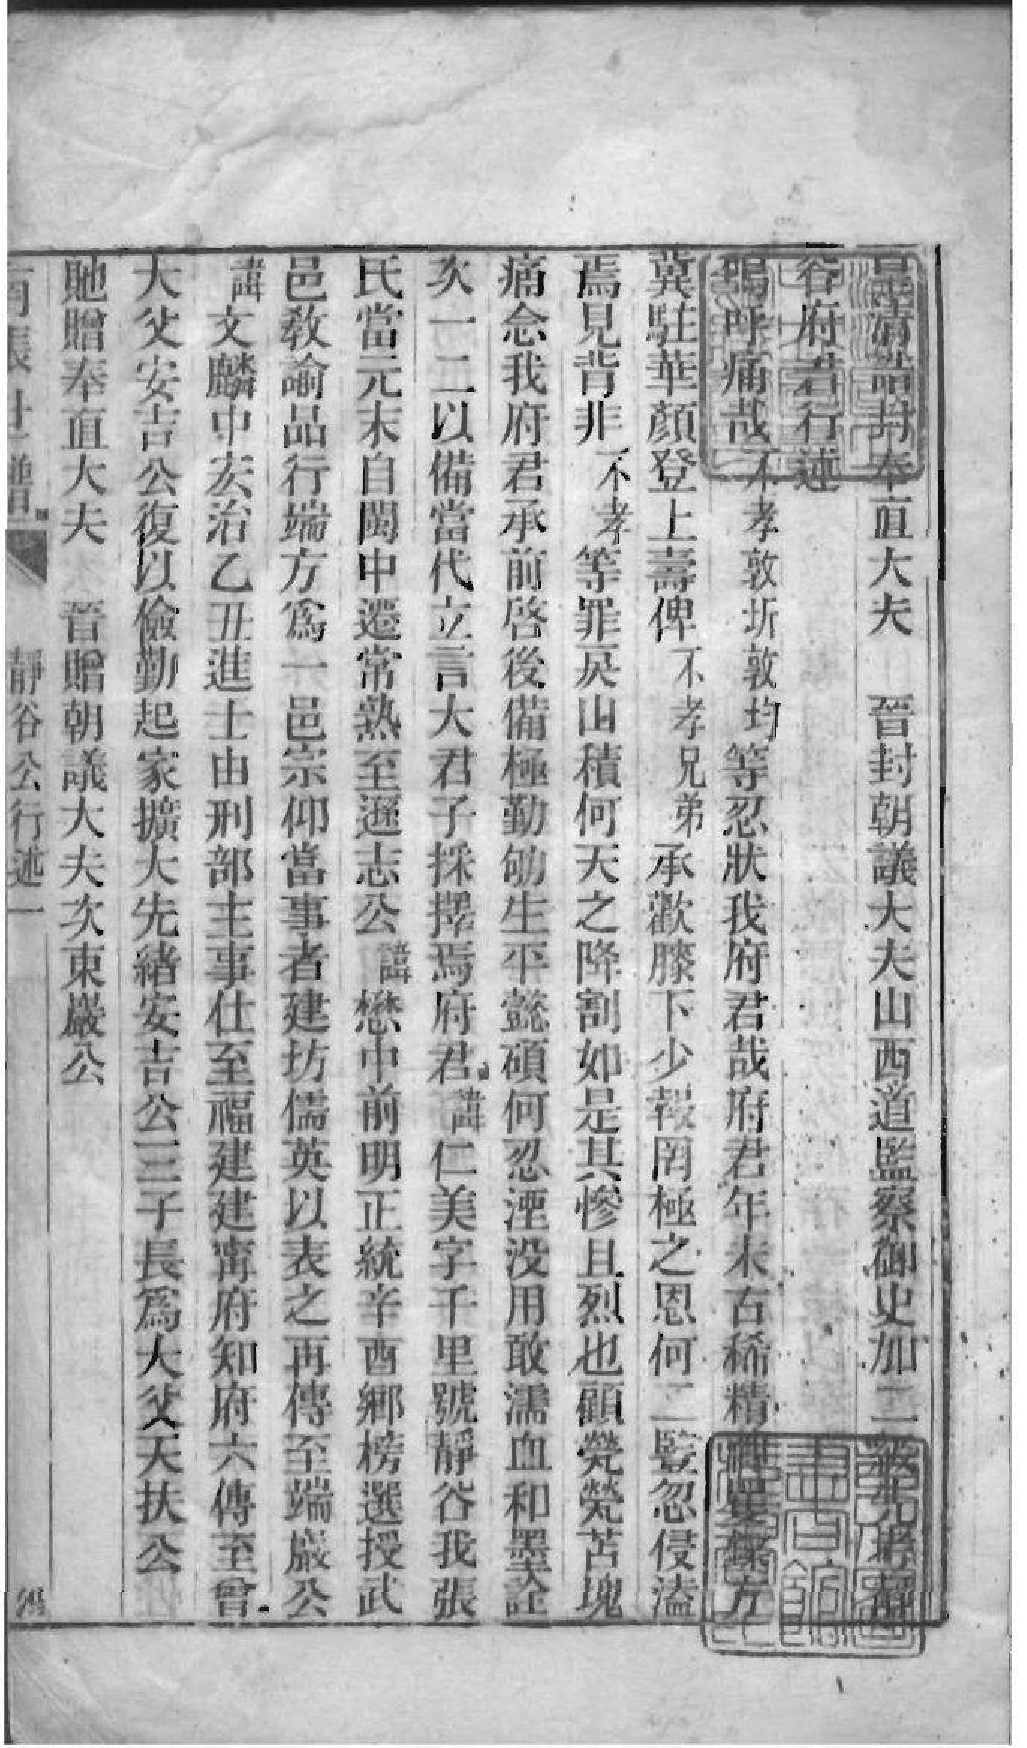 皇清誥封奉直大夫　晉封朝議大夫山西道監察御史加二級先考靜
谷府君行述
嗚呼痛哉不孝敦圻敦均等忍狀我府君哉府君年未古稀精神曼鑠方
冀駐華顏登上壽俾不孝兄弟承歡膝下少報罔極之恩何二豎忽侵溘
焉見背非不孝等罪戾山積何天之降割如是其慘且烈也顧煢煢苫塊
痛念我府君承前啓後備極勤劬生平懿碩何忍湮没用敢濡血和墨詮
次一二以備當代立言大君子採擇焉府君諱仁美字千里號靜谷我張
氏當元末自閩中遷常熟至遜志公諱懋中前明正統辛酉鄉榜選授武
邑敎諭品行端方爲一邑宗仰當事者建坊儒英以表之再傳至端巖公
諱文麟中宏治乙丑進士由刑部主事仕至福建建甯府知府六傳至曾
大父安吉公復以儉勤起家擴大先緒安吉公三子長爲大父天扶公
貤贈奉直大夫　晉贈朝議大夫次東巖公
南張世譜　靜谷公行述　一